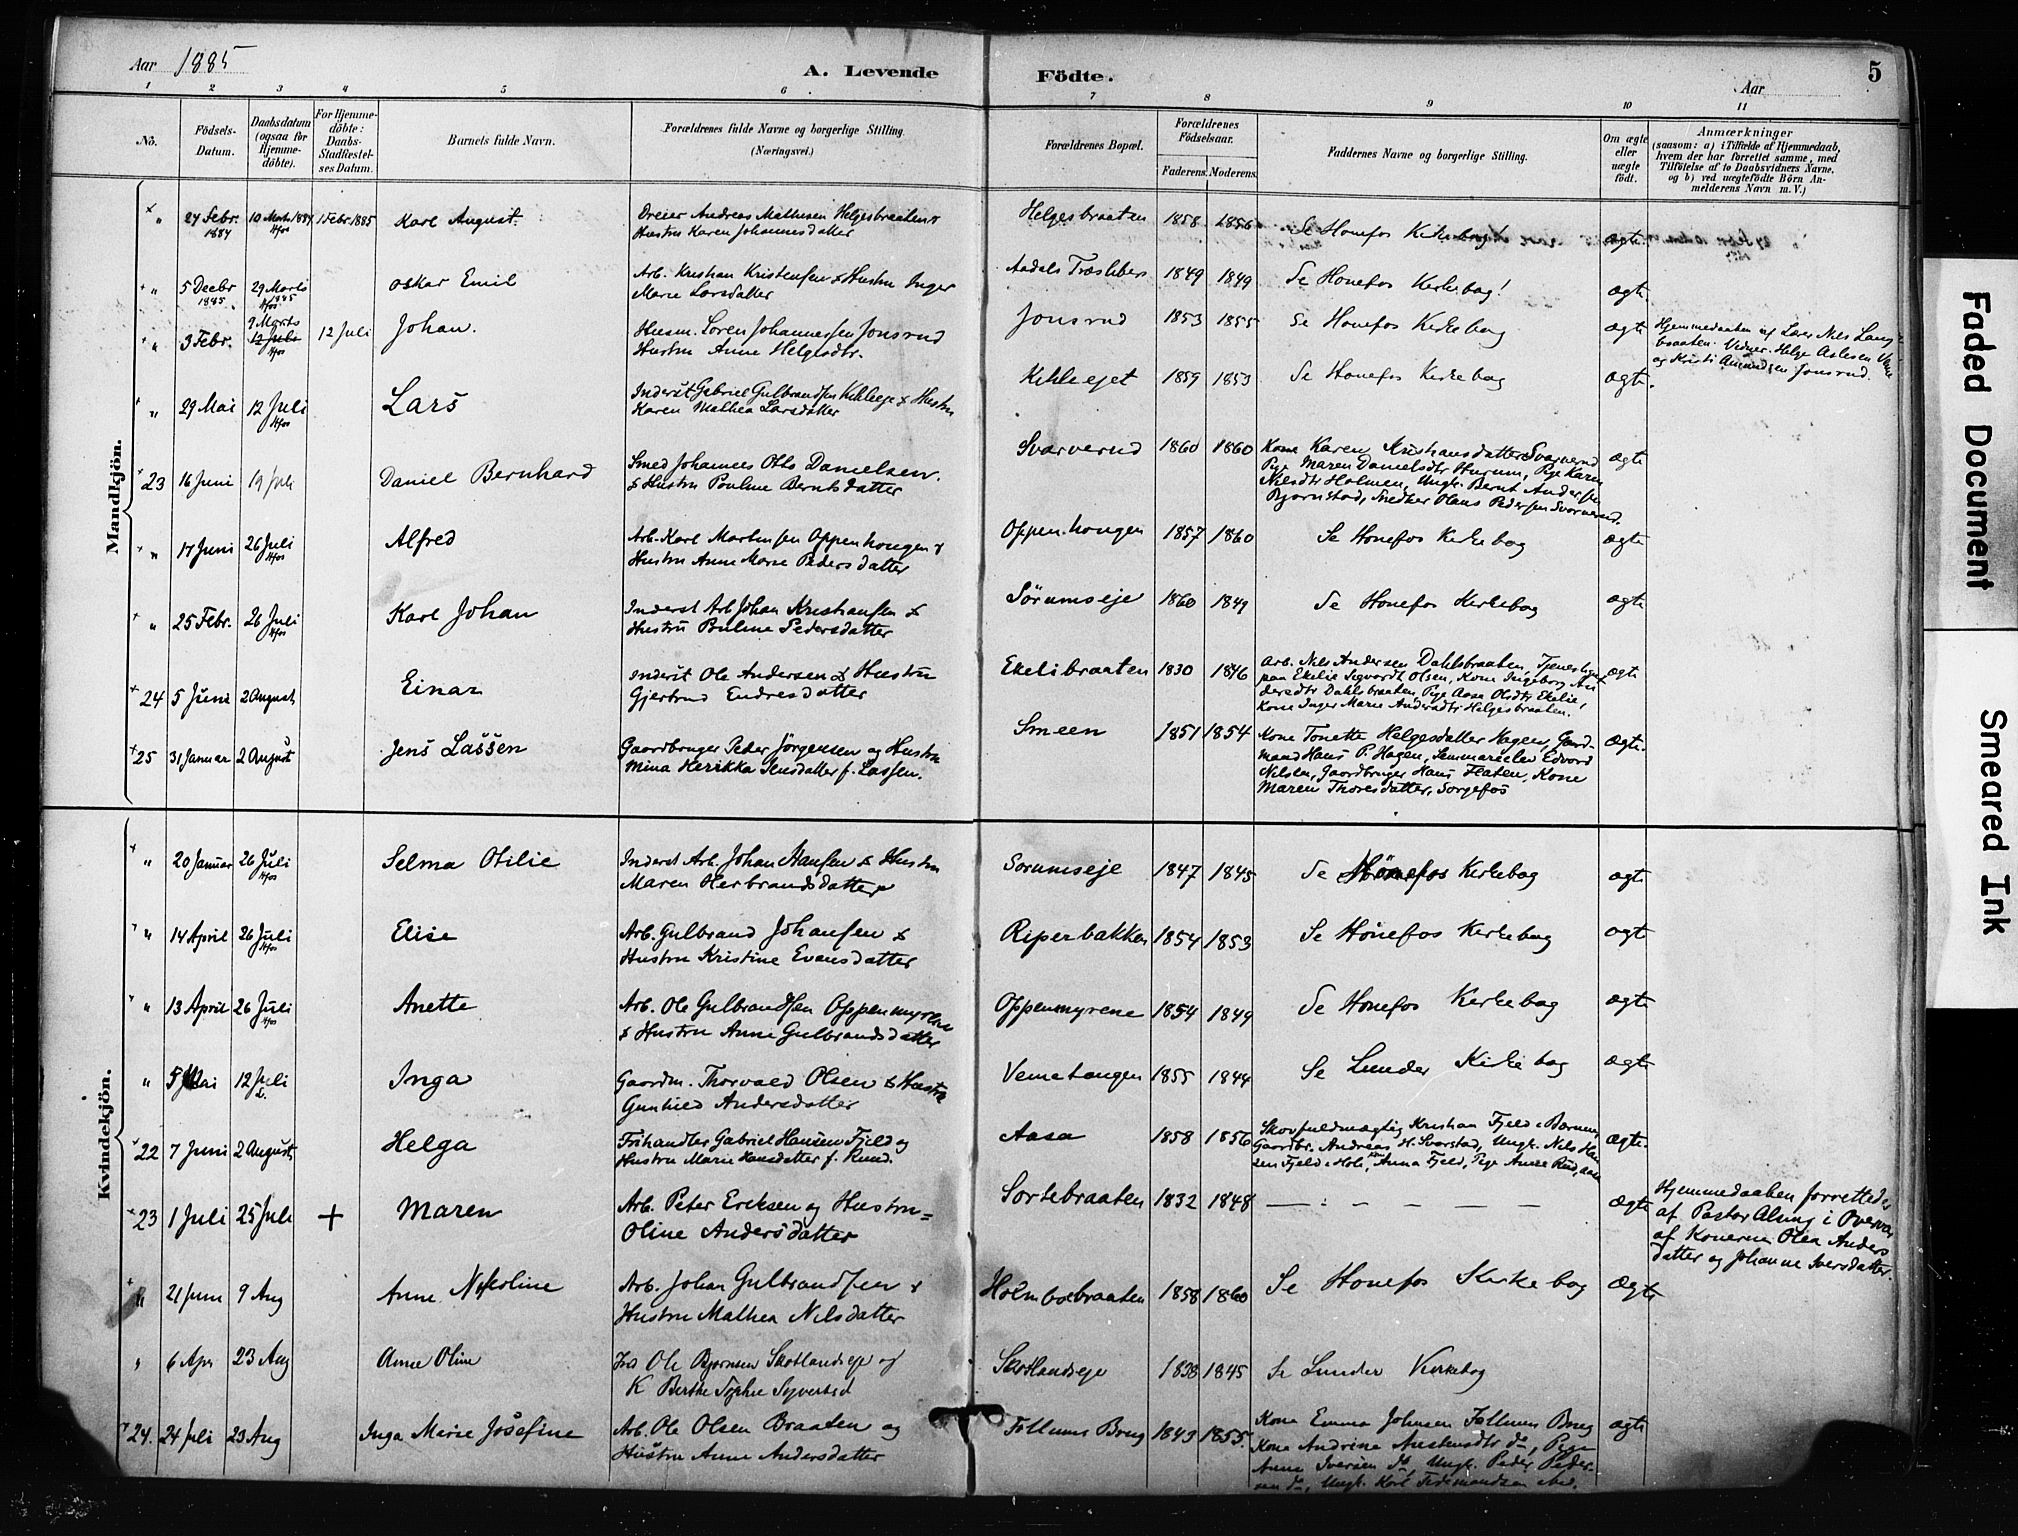 Aar 1885
A. Levende
Födte.
Aar
5
1 2 3 4 5 6 7 8 9 10 11
No.
Födsels-
Datum.
Daabsdatum
(ogsaa for
Hjemme-
döbte).
For Hjemme-
döbte:
Daabs-
Stadfæstel-
ses Datum.
Barnets fulde Navn.
Forældrenes fulde Navne og borgerlige Stilling.
(Næringsvei.)
Forældrenes Bopæl.
Forældrenes
Födselsaar.
Faderens. Moderens.
Faddernes Navne og borgerlige Stilling.
Om ægte
eller
uægte
födt.
Anmærkninger
(saasom: a) i Tilfælde af Hjemmedaab,
hvem der har forrettet samme, med
Tilföielse af to Daabsvidners Navne.
og b) ved uægtefödte Börn An-
melderens Navn m. V.)
Mandkjön.
" 24 Febr. 1884 10 Marts 1884 Hfos 1 Febr 1885 Karl August.
Dreier Andreas Mathisen Helgesbraaten &
Hustru Karen Johannesdatter
Helgesbraaten 1858 1856 Se Honefos Kirkebog! ægte
" 5 Decbr 1885 29 Marts 1885 Hfos Oskar Emil
Arb. Kristian Kristensen & Hustru Inger
Marie Larsdatter
Aadals Træsliberi 1849 1849 Se Honefos Kirkebog! ægte
" 3 Febr. 9 Marts 12 Juli Hfos 12 Juli Johan.
Husm. Soren Johannessen Jonsrud
Hustru Anne Helgesdtr.
Jonsrud 1853 1855 Se Honefos Kirkebog ægte
Hjemmedaaben af Lars Nils Lang-
braaten. Vidner. Helge Aslesen
og Kristi Amundsen Jonsrud.
" 29 Mai 12 Juli Hfos Lars
Inderst Gabriel Gulbrandsen Kihleeje & Hustru
Karen Mathea Larsdatter
Kihleejet 1859 1853 Se Honefos Kirkebog ægte.
23 16 Juni 19 Juli Daniel Bernhard
Smed Johannes Otto Danielsen
& Hustru Pouline Berntsdatter
Svarverud 1860 1860 Kone Karen Kristiansdatter Svarverud
Pige Maren Danielsdtr Hurum, Pige Karen
Nilsdtr Holmen, Ungk. Bernt Andersen
Bjornstad, Snedker Hans Pedersen Svarverud.
ægte
" 17 Juni 26 Juli Hfos Alfred
Arb. Karl Martinsen Oppenhougen &
Hustru Anne Marie Pedersdatter
Oppenhougen 1857 1860 Se Honefos Kirkebog ægte
" 25 Febr. 26 Juli Hfos Karl Johan
Inderst Arb Johan Kristiansen &
Hustru Pouline Pedersdatter
Sörumseje 1860 1849 Se Honefos Kirkebog ægte
24 5 Juni 2 August Einar
Inderst Ole Andersen & Hustru
Gjertrud Endresdatter
Ekelibraaten 1830 1846 Arb. Nils Andersen Dahlsbraaten, Tjenestegut
paa Ekelie Sigvardt Olsen, Kone Ingeborg An
dersdtr Dahlsbraaten, Pige Aase Olsdtr Ekelie,
Kone Inger Marie Andersdtr Helgesbraaten.
ægte
25 31 Januar 2 August Jens Lassen
Gaardbruger Peder Jörgensen og Hustru
Mina Henrikka Jensdatter f. Lassen.
Smeen 1851 1854 Kone Tonette Helgesdatter Hagen, Gaard-
mand Hans P. Hagen, Seminarielev Edvard
Nilsen, Gaardbruger Hans Flaten, Kone
Maren Thoresdatter, Sorgefos
ægte.
Kvindekjön.
" 20 Januar 26 Juli Hfos Selma Otilie
Inderst Arb. Johan Hansen & Hustru
Maren Herbrandsdatter
Sorumseje 1847 1845 Se Hönefos Kirkebog ægte
" 14 April 26 Juli Hfos Elise
Arb. Gulbrand Johansen &
Hustru Kristine Evansdatter
Riperbakken 1854 1853 Se Hönefos Kirkebog ægte
" 13 April 26 Juli Hfos Anette
Arb. Ole Gulbrandsen Oppenmyrene
& Hustru Anne Gulbrandsdatter
Oppenmyrene 1854 1849 Se Honefos Kirkebog ægte
" 5 Mai 12 Juli L. Inga
Gaardm. Thorvald Olsen & Hustru
Gunhild Andersdatter
Vemetangen 1855 1844 Se Lunder Kirkebog ægte
22 7 Juni 2 August Helga
Frihandler Gabriel Hansen Fjeld og
Hustru Marie Hansdatter f. Ruud.
Aasa 1858 1856 Skovfuldmægtig Kristian Fjeld i Bærum,
Gaardbr. Andreas H. Svarstad, Ungk. Nils Han
sen Fjeld i Hole, Anna Fjeld, Pige Anne Rud, Aasa
ægte.
23 1 Juli 25 Juli + Maren
Arb. Peter Eriksen og Hustru
Oline Andersdatter
Sortebraaten 1832 1848 — : — — — — ægte
Hjemmedaaben forrettedes
af Pastor Alsing i Overvær
af Konerne Olea Anders
datter og Johanne Iversdatter.
" 21 Juni 9 Aug Anne Nikoline
Arb. Johan Gulbrandsen &
Hustru Mathea Nilsdatter
Holmboebraaten 1858 1860 Se Honefos Kirkebog Ægte
" 6 Apr 23 Aug Anne Oline
Ole Bjornsen Skotlandseje og
K Berthe Sophie Syversdtr
Skotlandseje 1838 1845 Se Lunder Kirkebog
24. 24 Juli 23 Aug Inga Marie Josefine
Arb. Ole Olsen Braaten og
Hustru Anne Andersdatter
Follums Brug 1843 1855. Kone Emma Johnsen Follums Brug
Kone Andrine Arestensdtr do, Pige
Anne Iversen do, Ungk. Peder Peder-
sen do, Ungk. Karl Ferdinandsen ibd.
ægte
Faded Document
Smeared Ink